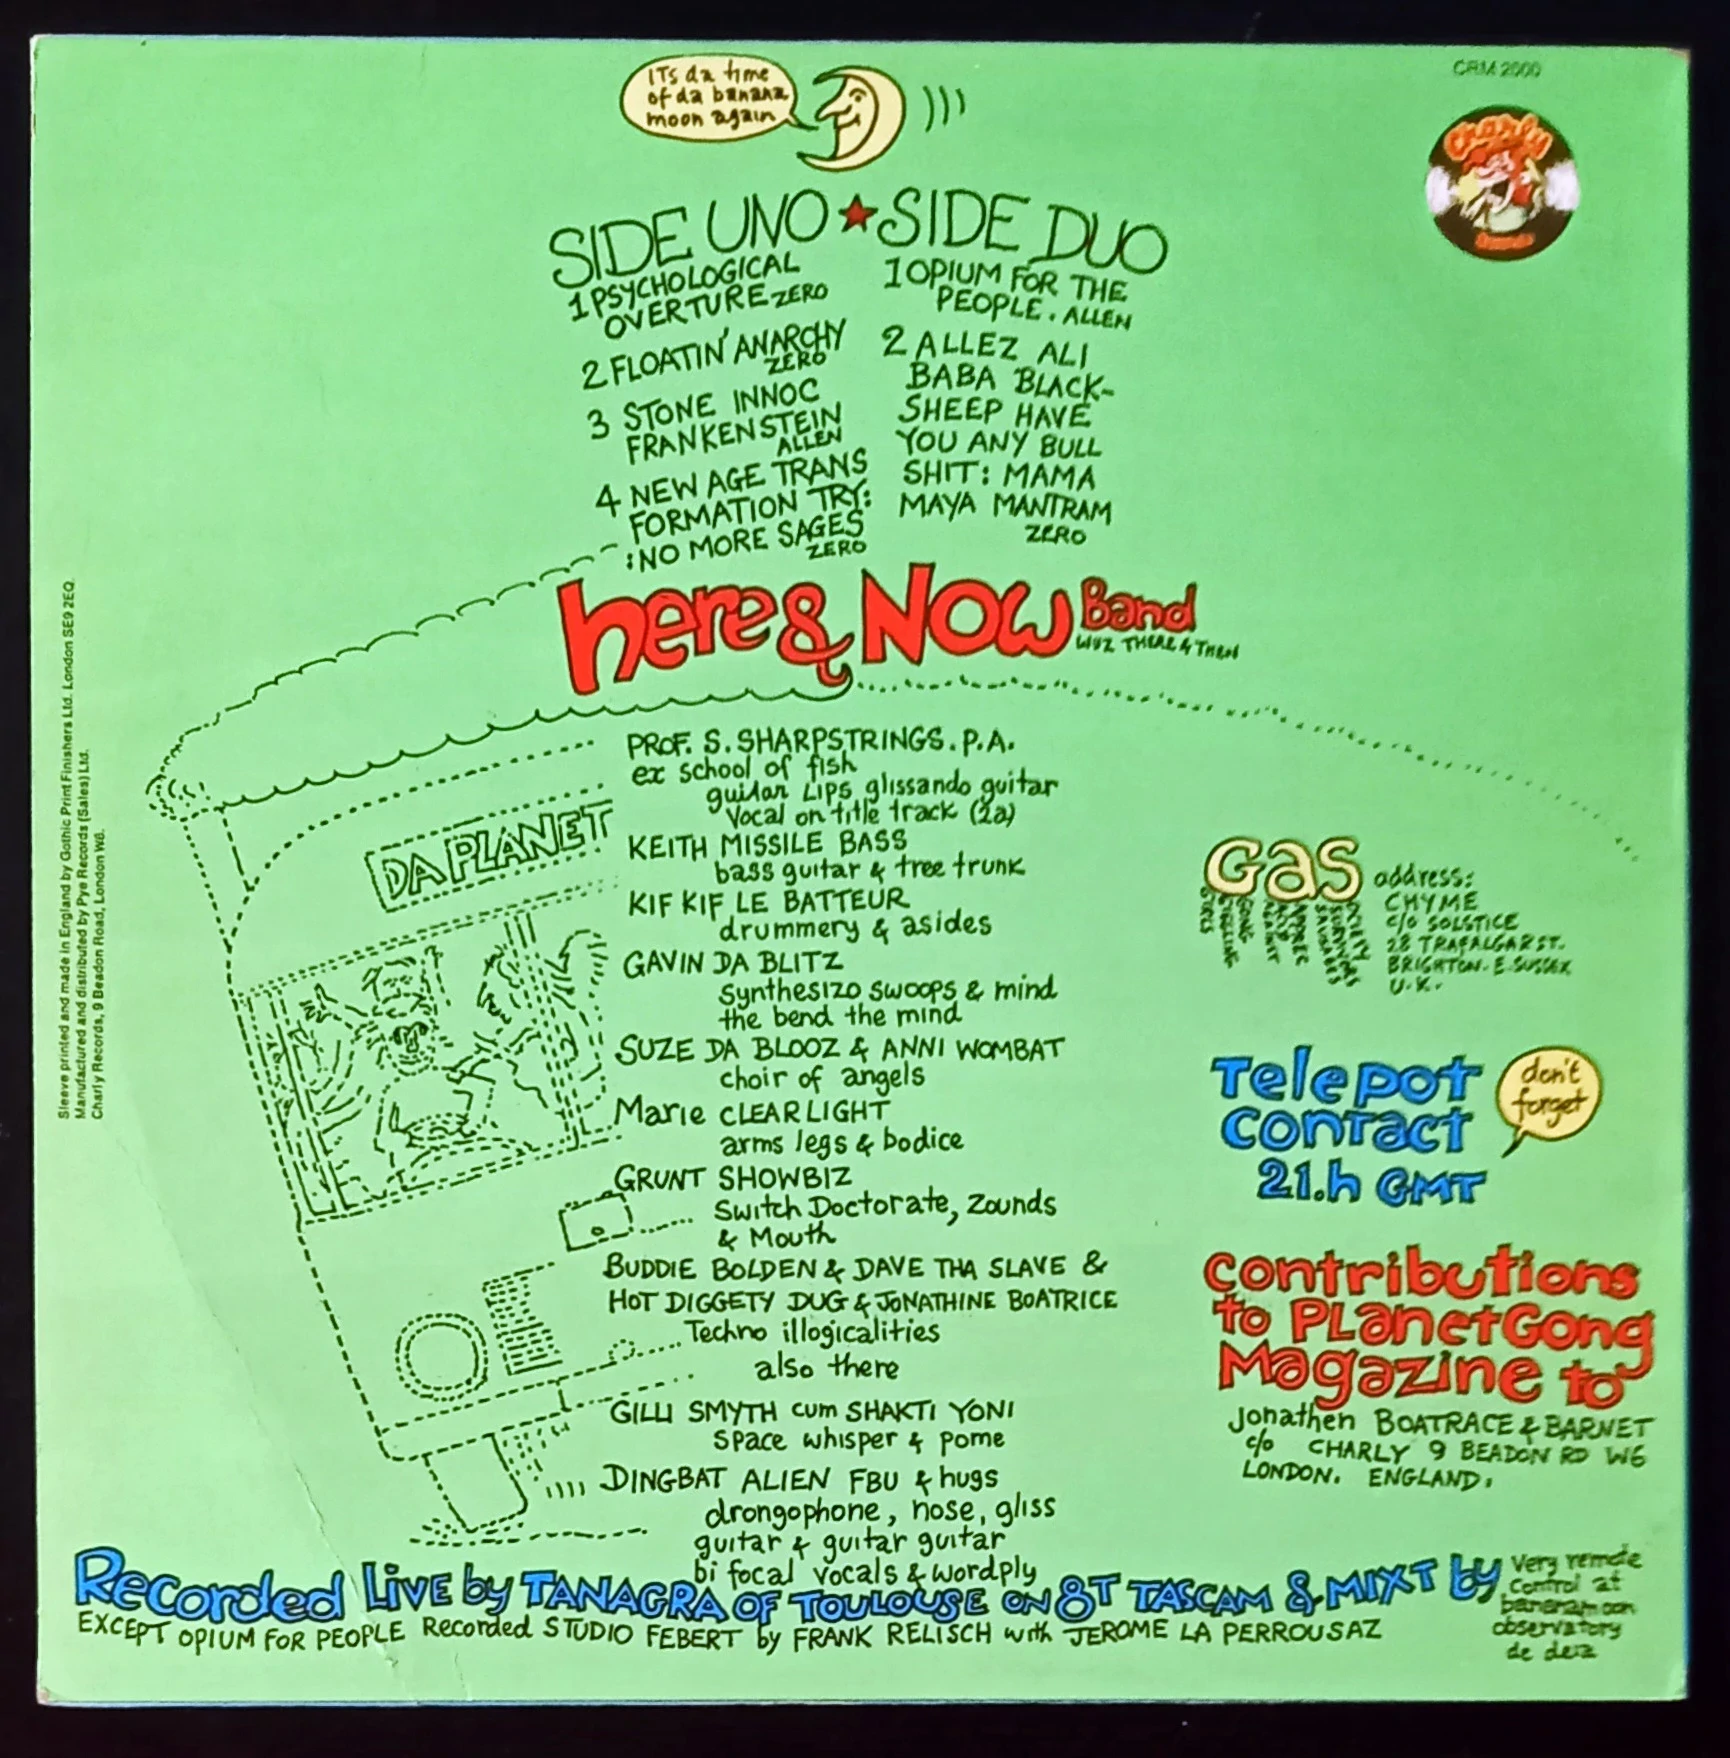 ITs da time
of da banana
moon again
CRM 2000
Charly
SIDE UNO ★ SIDE DUO
1 PSYCHOLOGICAL
OVERTURE ZERO
2 FLOATIN' ANARCHY
ZERO
3 STONE INNOC
FRANKENSTEIN
ALLEN
4 NEW AGE TRANS
FORMATION TRY:
:NO MORE SAGES
ZERO
1 OPIUM FOR THE
PEOPLE. ALLEN
2 ALLEZ ALI
BABA BLACK-
SHEEP HAVE
YOU ANY BULL
SHIT: MAMA
MAYA MANTRAM
ZERO
here & NOW Band
WUZ THERE & THEN
PROF. S. SHARPSTRINGS. P.A.
ex school of fish
guitar LIPS glissando guitar
Vocal on title track (2a)
KEITH MISSILE BASS
bass guitar & tree trunk
KIF KIF LE BATTEUR
drummery & asides
GAVIN DA BLITZ
synthesizo swoops & mind
the bend the mind
SUZE DA BLOOZ & ANNI WOMBAT
choir of angels
Marie CLEARLIGHT
arms legs & bodice
GRUNT SHOWBIZ
Switch Doctorate, Zounds
& Mouth
BUDDIE BOLDEN & DAVE THA SLAVE &
HOT DIGGETY DUG & JONATHINE BOATRICE
Techno illogicalities
also there
GILLI SMYTH cum SHAKTI YONI
Space whisper & pome
DINGBAT ALIEN FBU & hugs
drongophone, nose, gliss
guitar & guitar guitar
bi focal vocals & wordply
DA PLANET
Gas address:
CHYME
c/o SOLSTICE
28 TRAFALGAR ST.
BRIGHTON. E. SUSSEX
U.K.
Telepot
contact
21.h GMT
don't
forget
contributions
to PLanetGong
Magazine to
Jonathen BOATRACE & BARNET
c/o CHARLY 9 BEADON RD W6
LONDON. ENGLAND.
Recorded Live by TANAGRA OF TOULOUSE ON 8T TASCAM & MIXT by
Very remote
control at
bananamoon
observatory
de deia
EXCEPT OPIUM FOR PEOPLE Recorded STUDIO FEBERT by FRANK RELISCH with JEROME LA PERROUSAZ
Sleeve printed and made in England by Gothic Print Finishers Ltd. London SE9 2EQ.
Manufactured and distributed by Pye Records (Sales) Ltd.
Charly Records, 9 Beadon Road, London W6.